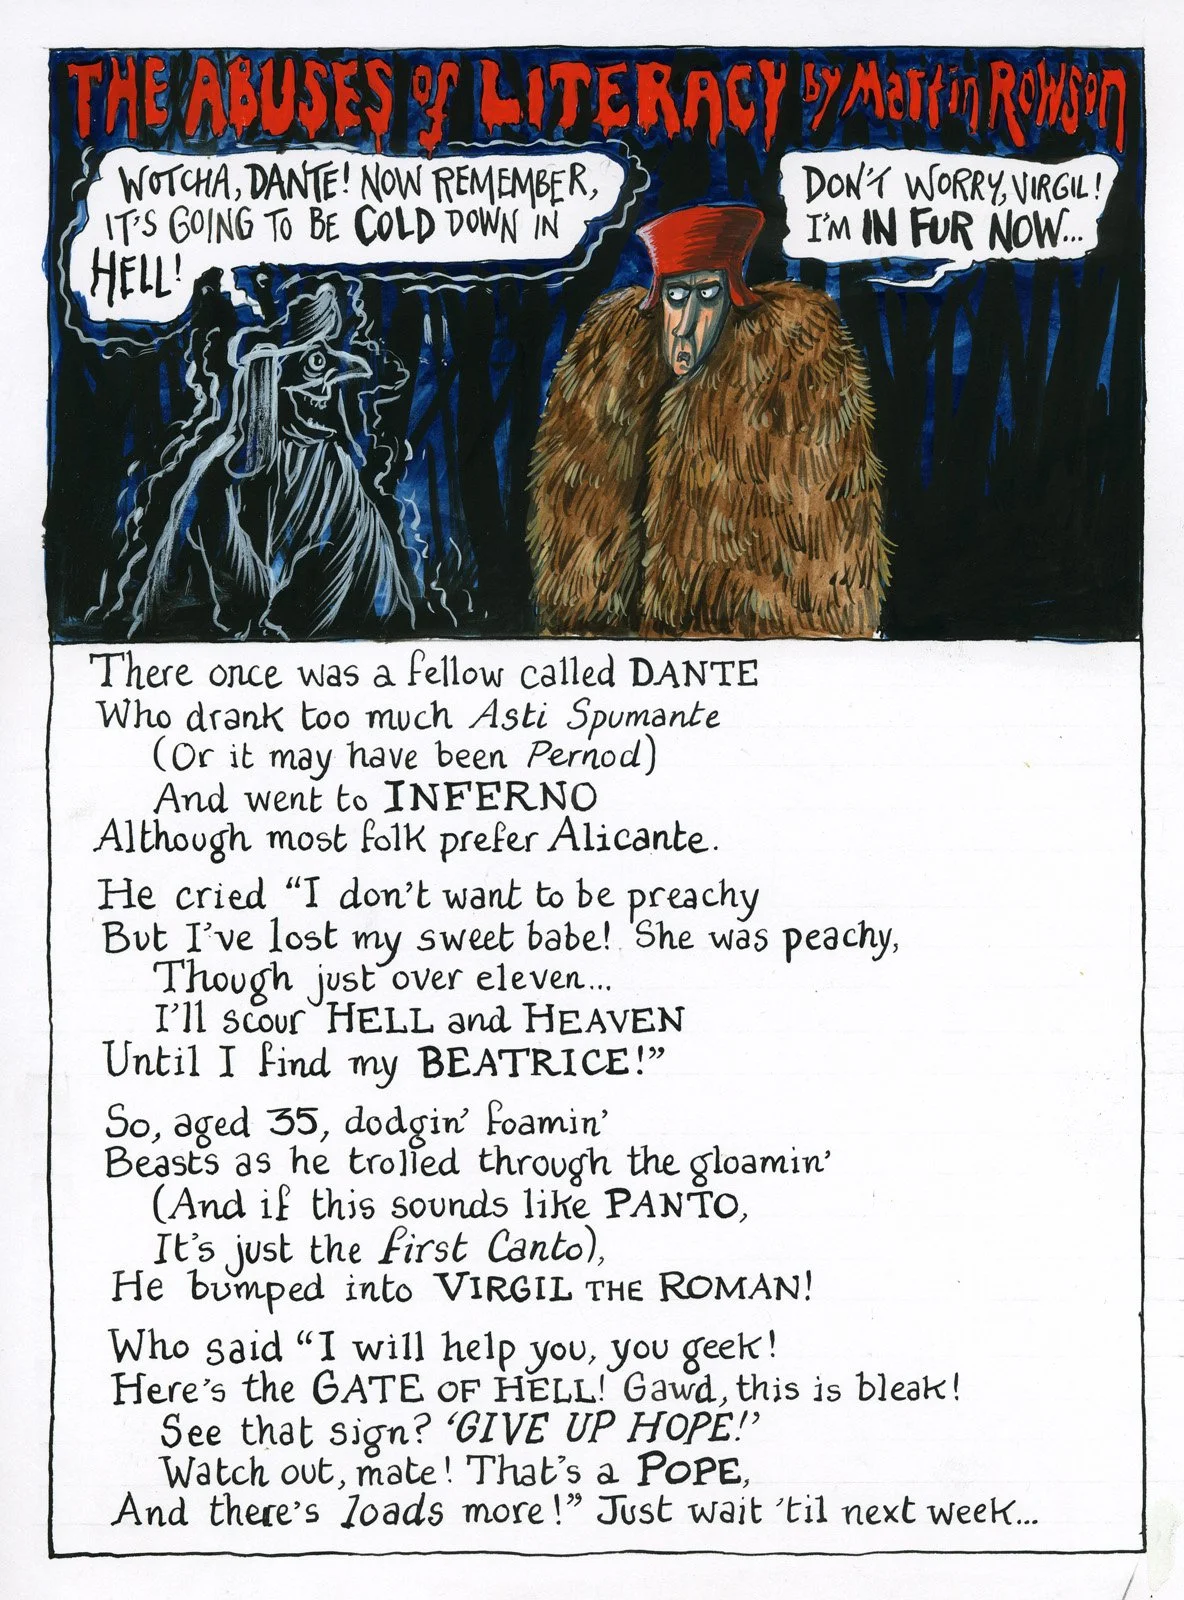 THE ABUSES of LITERACY by Martin Rowson
WOTCHA, DANTE! NOW REMEMBER,
IT'S GOING TO BE COLD DOWN IN
HELL!
DON'T WORRY, VIRGIL!
I'M IN FUR NOW...
There once was a fellow called DANTE
Who drank too much Asti Spumante
(Or it may have been Pernod)
And went to INFERNO
Although most folk prefer Alicante.
He cried "I don't want to be preachy
But I've lost my sweet babe! She was peachy,
Though just over eleven...
I'll scour HELL and HEAVEN
Until I find my BEATRICE!"
So, aged 35, dodgin' foamin'
Beasts as he trolled through the gloamin'
(And if this sounds like PANTO,
It's just the first Canto),
He bumped into VIRGIL THE ROMAN!
Who said "I will help you, you geek!
Here's the GATE OF HELL! Gawd, this is bleak!
See that sign? 'GIVE UP HOPE!'
Watch out, mate! That's a POPE,
And there's loads more!" Just wait 'til next week...